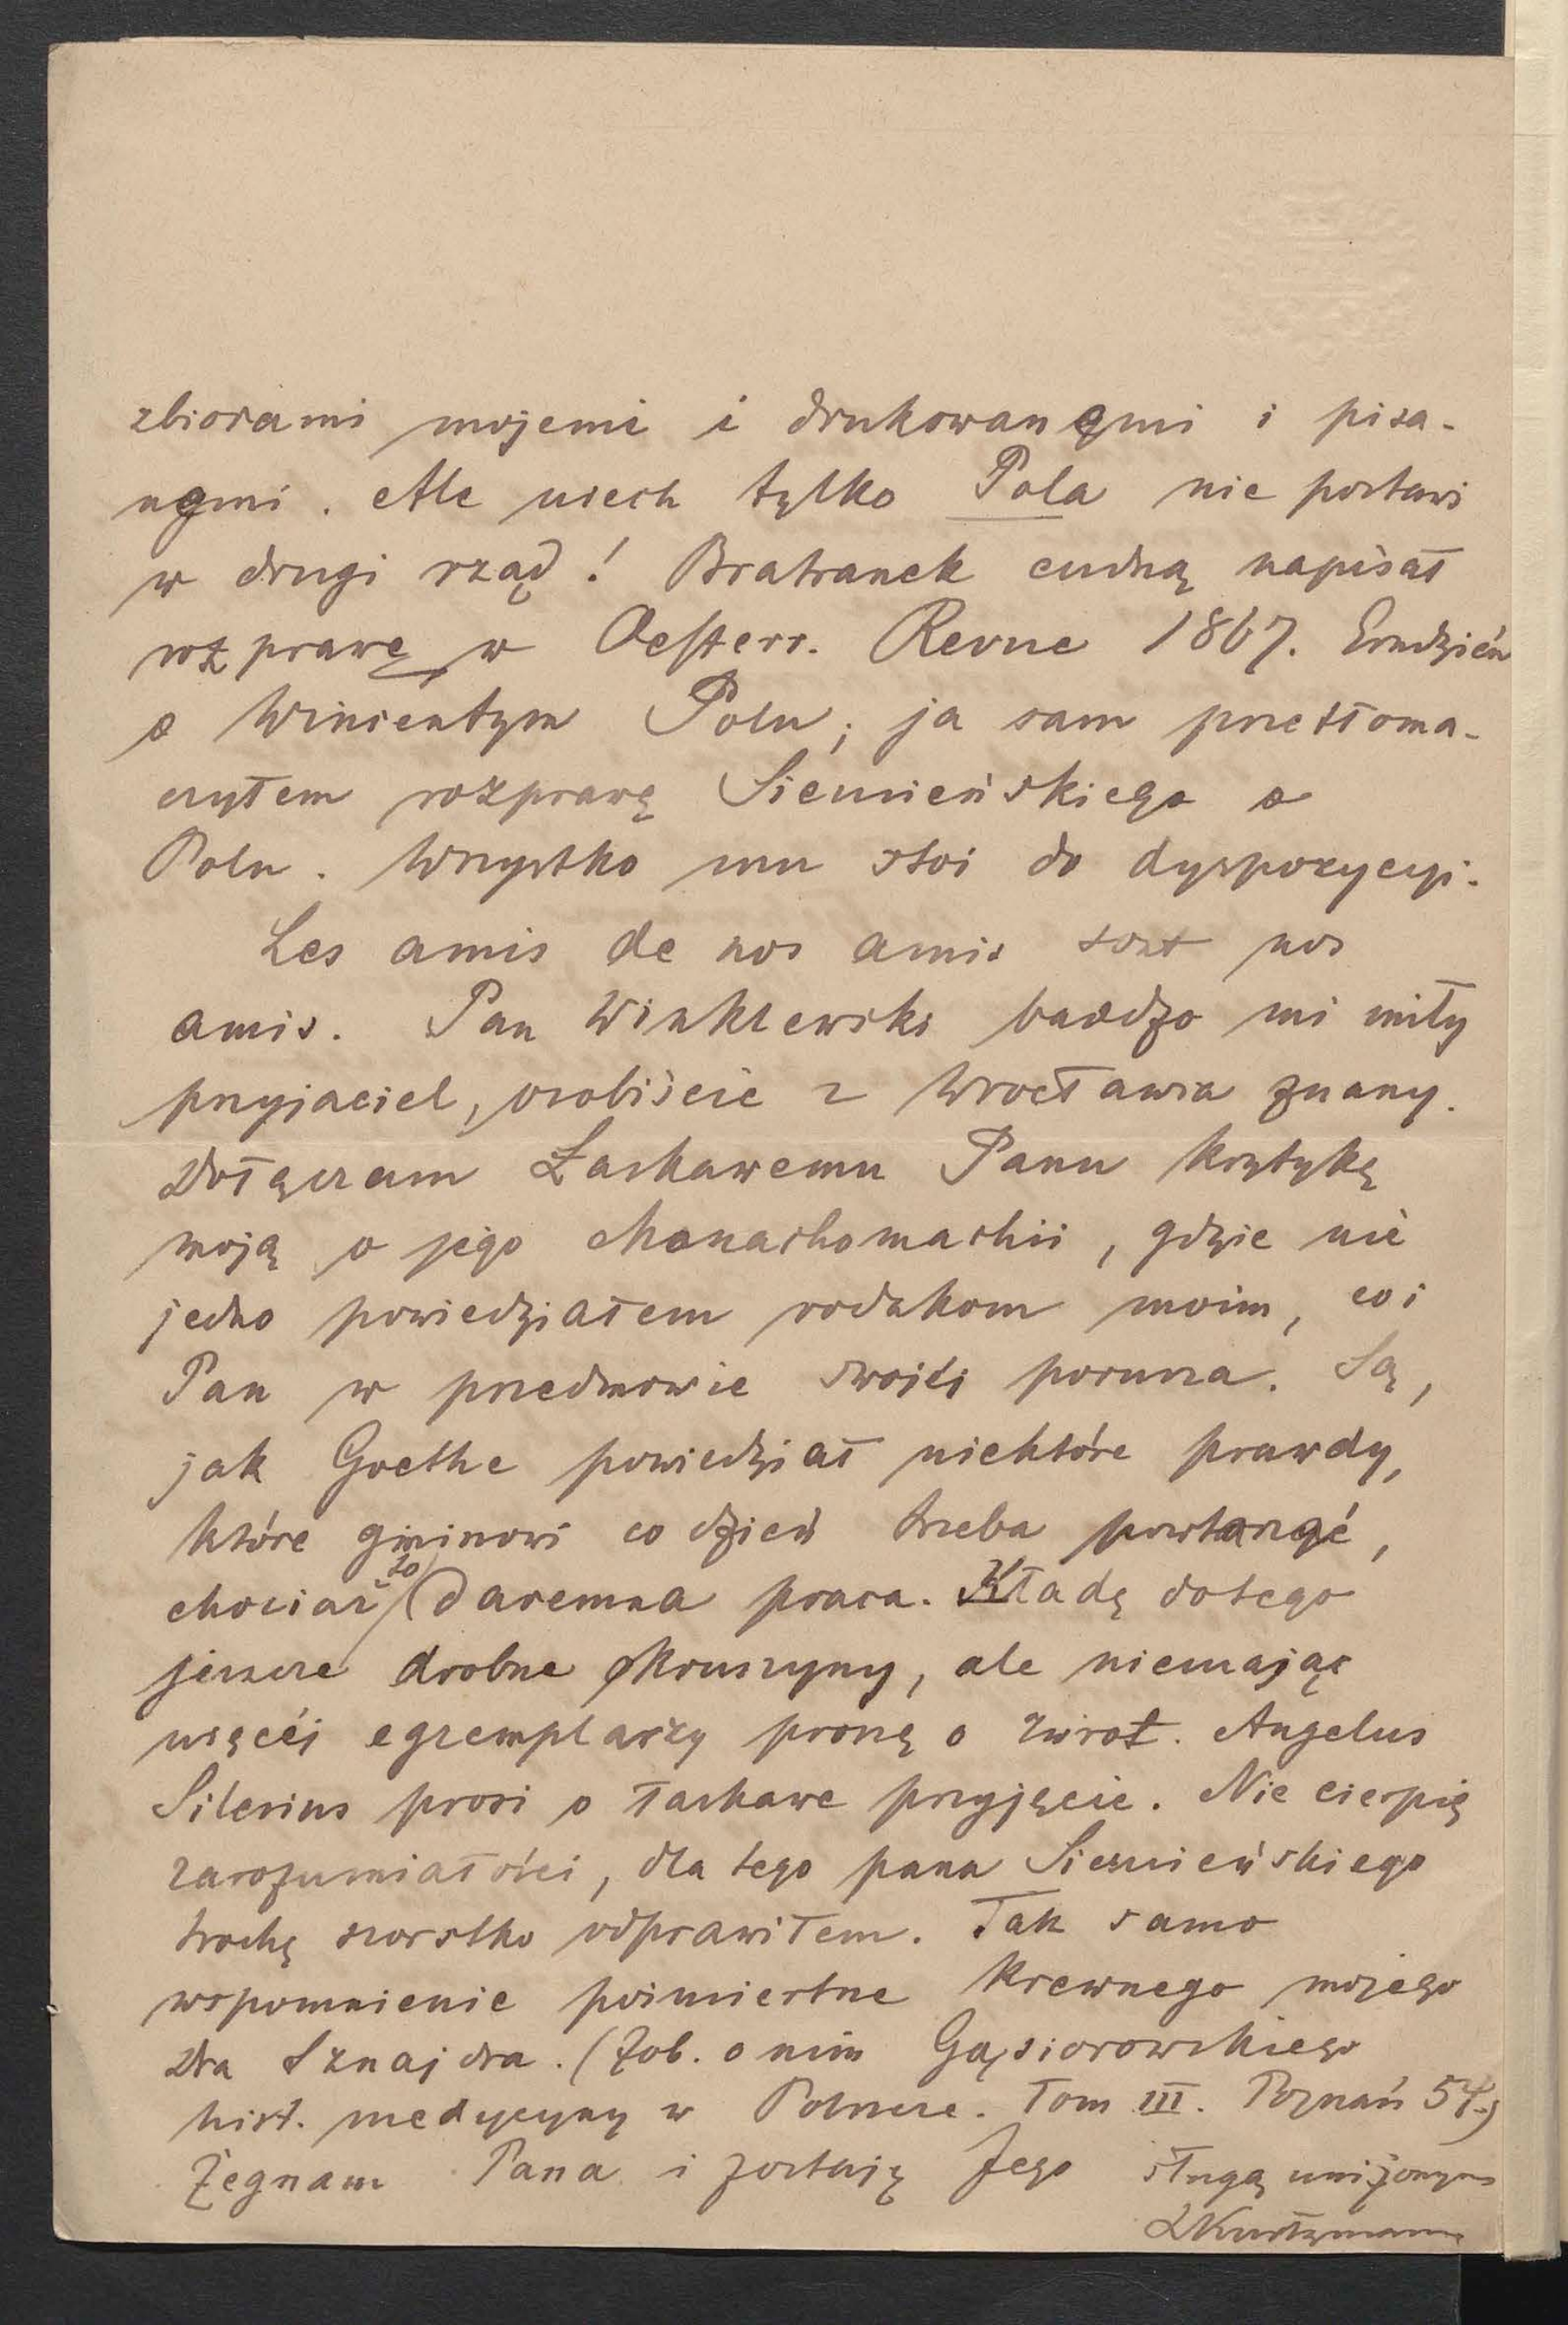 zbiorami mojemi i drukowanymi i pisa-
nymi. Ale niech tylko Pola nie postawi
w drugi rząd! Bratranek cudną napisał
rozprawę w Oesterr. Revue 1867. Grudzień
o Winientym Polu; ja sam przetłoma-
czyłem rozprawę Siemieńskiego o
Polu. Wszystko mu stoi do dyspozycyi.
Les amis de nos amis sont nos
amis. Pan Winklewski bardzo mi miły
przyjaciel, osobiście z Wrocławia znany.
Dołączam Łaskawemu Panu krytykę
moją o jego Monachomachii, gdzie nie
jedno powiedziałem rodakom moim, co i
Pan w przedmowie swojéj porusza. Są,
jak Goethe powiedział niektóre prawdy,
które gminowi co dzień trzeba powtarzać,
chociaż to daremna praca. Kładę dotego
jeszcze drobne okruszyny, ale niemając
więcéj egzemplarzy proszę o zwrot. Angelus
Silesius prosi o łaskawe przyjęcie. Nie cierpię
zarozumiałości, dla tego pana Siemieńskiego
trochę szorstko odprawiłem. Tak samo
wspomnienie pośmiertne krewnego mojego
Dra Sznajdra. (Zob. o nim Gąsiorowskiego
hist. medycyny w Polsce. Tom III. Poznań 54.)
Żegnam Pana i zostaję Jego sługą uniżonym
LKurtzmann